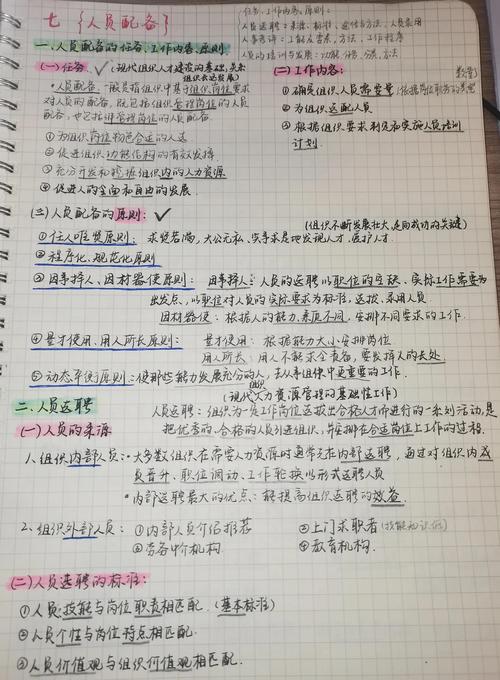 七 {人员配备}
任务、工作内容、原则:
人员选聘:来源、标准、途径与方法、人员录用
人事考评:工能及要素、方法、工作程序
人员的培训与发展:功能、分类、方法
一、人员配备的任务、工作内容、原则
(一)任务 ✓ (现代组织人才建设的基础,关系组织长远发展)
·人员配备:一般是指组织中基于组织岗位要求
对人员的配备,既包括组织管理岗位的人员
配备,也包括非管理岗位的人员配备
①为组织岗位物色合适的人选
②促进组织功能结构的有效发挥
③充分开发和挖掘组织内的人力资源
④促进人的全面和自由的发展
(二)工作内容:
①确定组织人员需要量(依据岗位职务的类型 数量)
②为组织选配人员
③根据组织要求制定和实施人员培训
计划.
(三)人员配备的原则: ✓ (组织不断发展壮大、走向成功的关键)
①任人唯贤原则:求贤若渴,大公无私、实事求是地发现人才、爱护人才
②程序化、规范化原则
③因事择人、因材器使原则:因事择人:人员的选聘以职位的空缺、实际工作需要为
出发点,以职位对人员的实际要求为标准,选拔、录用人员
因材器使:根据人的能力、素质不同,安排不同要求的工作.
④量才使用、用人所长原则:量才使用:根据能力大小安排岗位
用人所长:用人不能求全责备,要发挥人的长处.
⑤动态平衡原则:使那些能力发展充分的人,去从事组织中更重要的工作.
二、人员选聘 (现代组织人力资源管理的基础性工作)
人员选聘:组织为一定工作岗位选拔出合格人才而进行的一系列活动,是
(一)人员的来源
把优秀的、合格的人员引进组织,并安排在合适岗位上工作的过程.
1、组织内部人员:·大多数组织在需要人力资源时通常先在内部选聘,通过对组织内成
员晋升、职位调动、工作轮换等形式选聘人员
·内部选聘最大的优点:能提高组织选聘的效益.
2、组织外部人员:①内部人员介绍推荐 ②上门求职者(技能知识低)
③劳务中介机构 ④教育机构.
(二)人员选聘的标准:
①人员技能与岗位职责相匹配.(基本标准)
②人员个性与岗位特点相匹配.
③人员价值观与组织价值观相匹配.